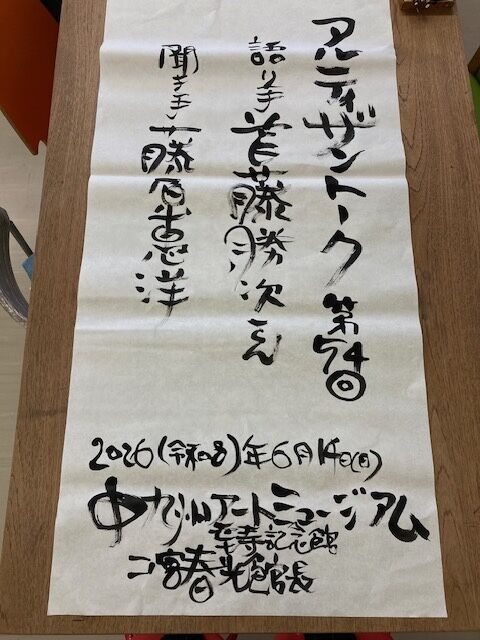 アルティザントーク 第54回
語り手 首藤勝次さん
聞き手 藤原惠洋
2026(令和8)年6月14日(日)
中九州アートミュージアム
幸寺記念館
二宮春光館長